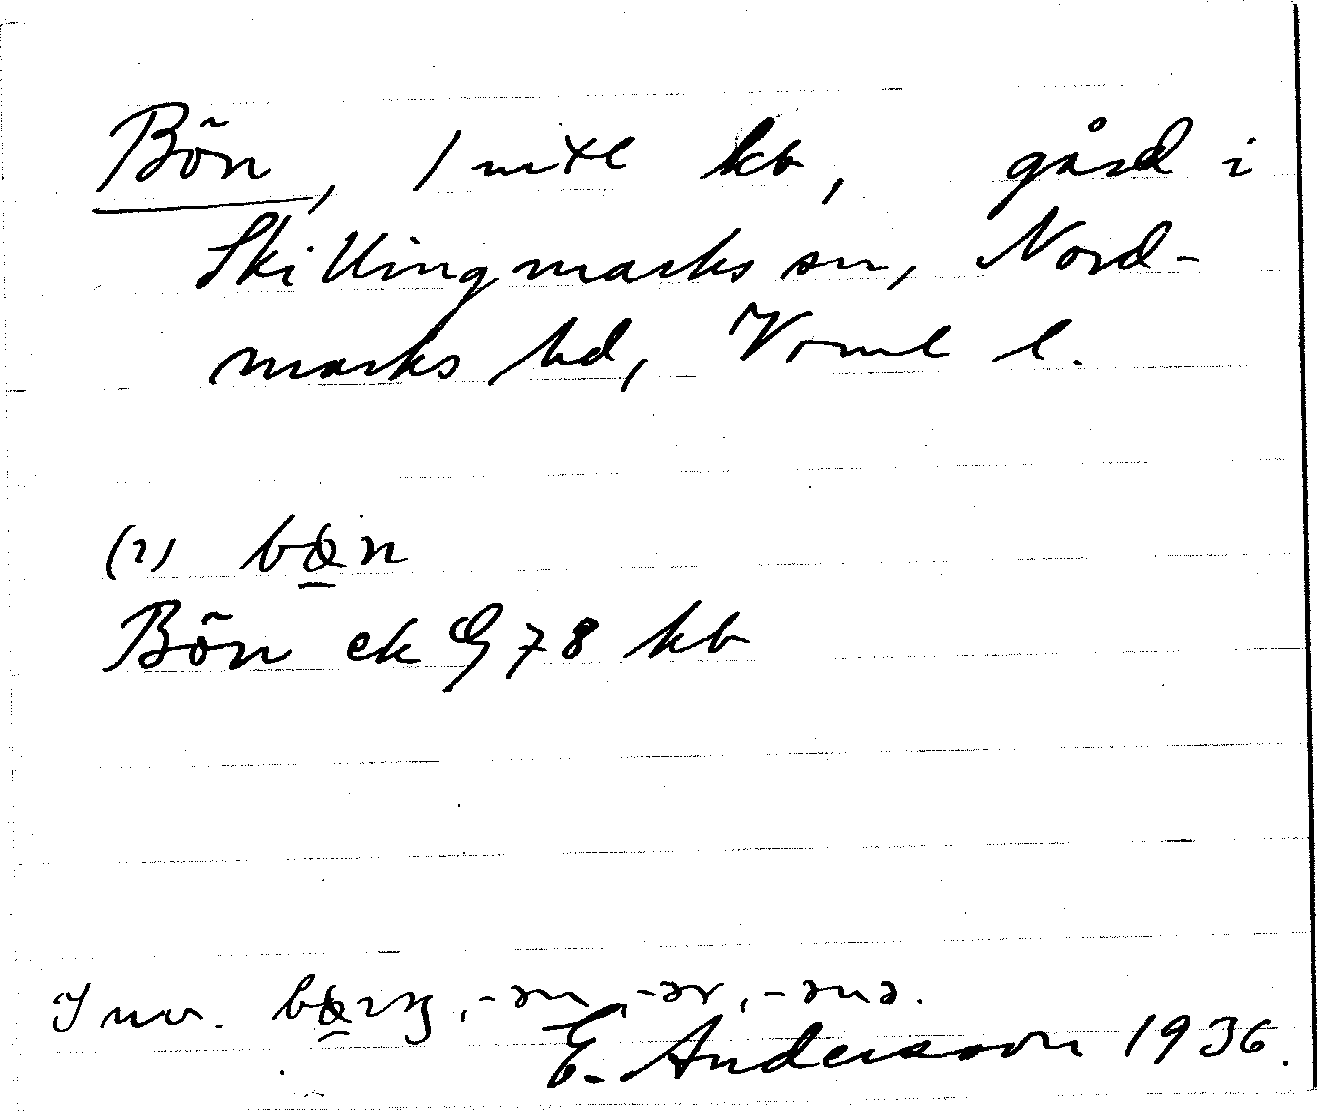 Bön, 1 mtl kb, gård i
Skillingmarks sn, Nord-
marks hd, Vrml l.
(2) bœn
Bön ek G 78 kb
Inv. -ən, -ər, -ənə.
E. Andersson 1936.